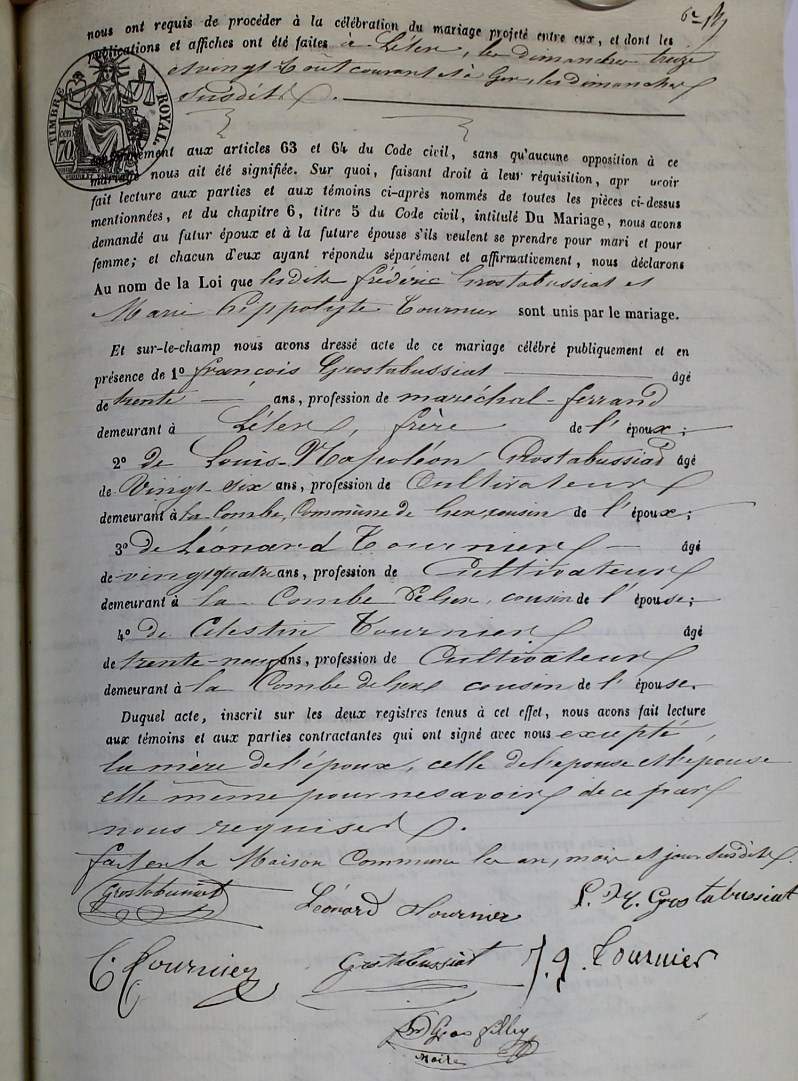 nous ont requis de procéder à la célébration du mariage projeté entre eux, et dont les
publications et affiches ont été faites à Lélex, les dimanches treize
et vingt Août courant et à Gex, les dimanches
susdits.
TIMBRE ROYAL
70
conformément aux articles 63 et 64 du Code civil, sans qu'aucune opposition à ce
mariage nous ait été signifiée. Sur quoi, faisant droit à leur réquisition, apr avoir
fait lecture aux parties et aux témoins ci-après nommés de toutes les pièces ci-dessus
mentionnées, et du chapitre 6, titre 5 du Code civil, intitulé Du Mariage, nous avons
demandé au futur époux et à la future épouse s'ils veulent se prendre pour mari et pour
femme; et chacun d'eux ayant répondu séparément et affirmativement, nous déclarons
Au nom de la Loi que lesdits frédéric Grostabussiat et
Marie hippolyte Tournier sont unis par le mariage.
Et sur-le-champ nous avons dressé acte de ce mariage célébré publiquement et en
présence de 1º françois Grostabussiat âgé
de trente ans, profession de maréchal-ferrand
demeurant à Lélex, frère de l'époux;
2º de Louis-Napoléon Grostabussiat âgé
de Vingt-six ans, profession de Cultivateur
demeurant à la Combe, Commune de Gex, cousin de l'époux;
3º de Léonard Tournier âgé
de vingt quatre ans, profession de Cultivateur
demeurant à la Combe de Gex, cousin de l'épouse;
4º de Célestin Tournier âgé
de trente-neuf ans, profession de Cultivateur
demeurant à la Combe de Gex cousin de l'épouse.
Duquel acte, inscrit sur les deux registres tenus à cet effet, nous avons fait lecture
aux témoins et aux parties contractantes qui ont signé avec nous excepté
la mère de l'époux, celle de l'épouse et l'épouse
elle même pour ne savoir de ce par
nous requises.
fait en la Maison Commune les an, mois et jour susdits.
Grostabussiat Léonard Tournier L. N. Grostabussiat
C. Tournier Grostabussiat J. J. Tournier
Gros
Maire